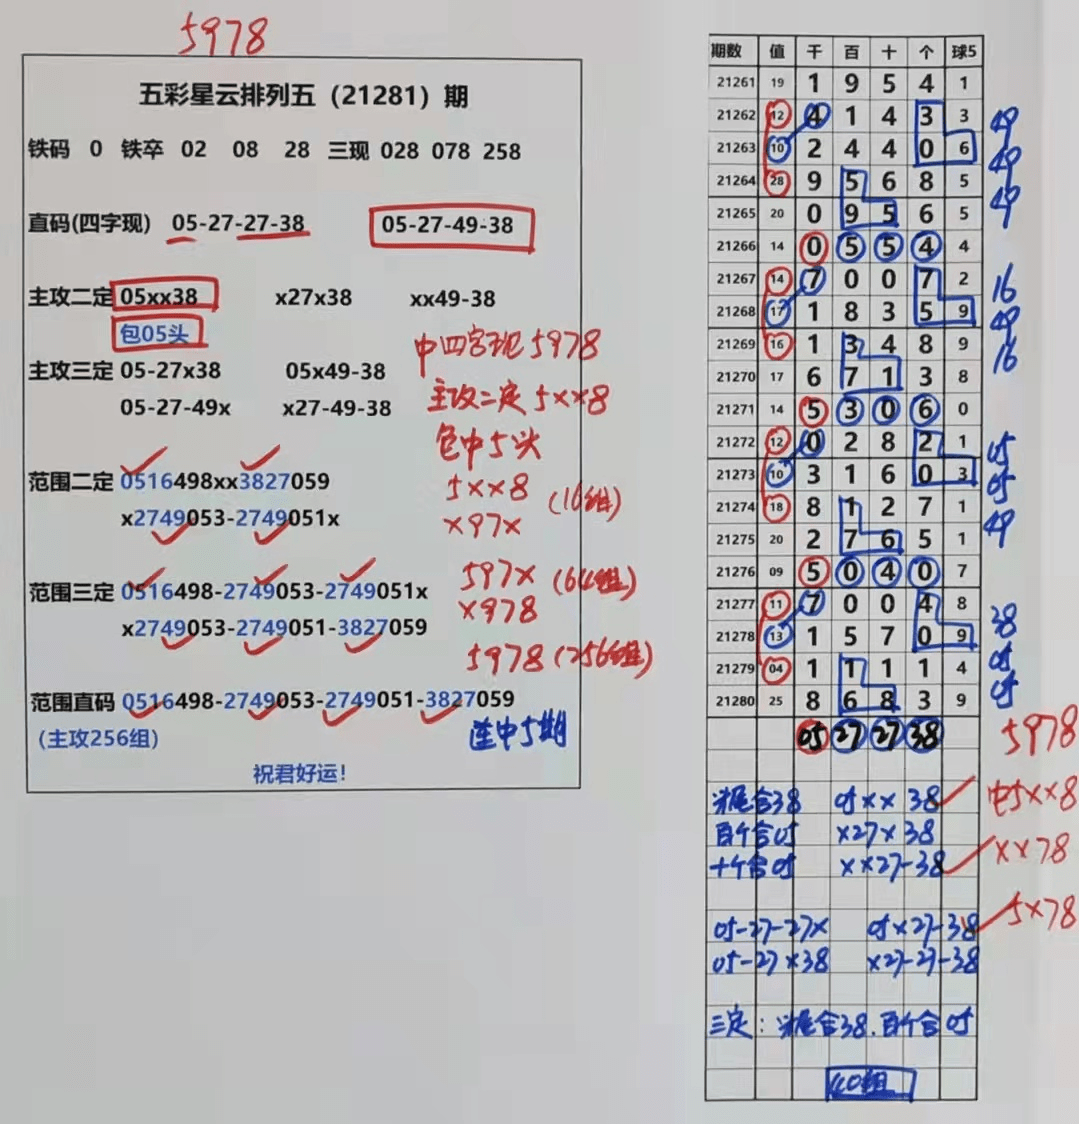 5978
五彩星云排列五（21281）期
铁码 0 铁卒 02 08 28 三现 028 078 258
直码(四字现) 05-27-27-38 05-27-49-38
主攻二定 05xx38 x27x38 xx49-38
包05头
中四字现5978
主攻三定 05-27x38 05x49-38
主攻二定5xx8
05-27-49x x27-49-38
包中5头
范围二定 0516498xx3827059
5xx8 (16组)
x2749053-2749051x
x97x
范围三定 0516498-2749053-2749051x
597x (64组)
x2749053-2749051-3827059
x978
5978 (256组)
范围直码 0516498-2749053-2749051-3827059
(主攻256组)
连中5期
祝君好运!
期数 值 千 百 十 个 球5
21261 19 1 9 5 4 1
21262 12 4 1 4 3 3 49
21263 10 2 4 4 0 6 49
21264 28 9 5 6 8 5 49
21265 20 0 9 5 6 5
21266 14 0 5 5 4 4
21267 14 7 0 0 7 2 16
21268 17 1 8 3 5 9 49
21269 16 1 3 4 8 9 16
21270 17 6 7 1 3 8
21271 14 5 3 0 6 0
21272 12 0 2 8 2 1 05
21273 10 3 1 6 0 3 05
21274 18 8 1 2 7 1 49
21275 20 2 7 6 5 1
21276 09 5 0 4 0 7
21277 11 7 0 0 4 8 38
21278 13 1 5 7 0 9 05
21279 04 1 1 1 1 4 05
21280 25 8 6 8 3 9
05 27 27 38 5978
尾合38 05xx38 中5xx8
百个合05 x27x38
十个合05 xx27-38 xx78
05-27-27x 05x27-38 5x78
05-27x38 x27-27-38
三定: 尾合38.百个合05
40组